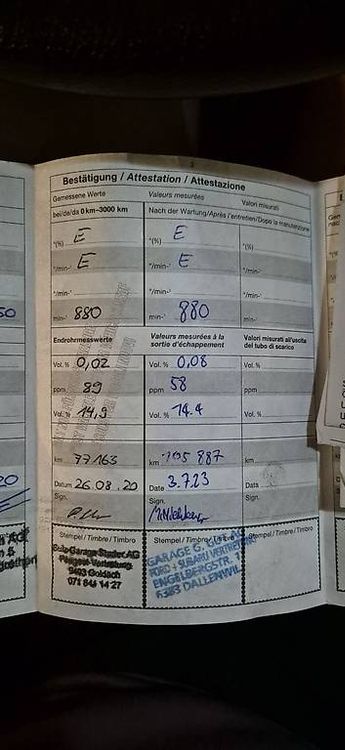 Bestätigung / Attestation / Attestazione
Gemessene Werte Valeurs mesurées Valori misurati
bei/da/da 0 km-3000 km Nach der Wartung/Après l'entretien/Dopo la manutenzione
°(%) E °(%) E °(%)
°/min-¹ E °/min-¹ E °/min-¹
°/min-¹ °/min-¹ °/min-¹
min-¹ 880 min-¹ 880 min-¹
Endrohrmesswerte Valeurs mesurées à la sortie d'échappement Valori misurati all'uscita del tubo di scarico
Vol. % 0,02 Vol. % 0,08 Vol. %
ppm 89 ppm 58 ppm
Vol. % 14,9 Vol. % 14.4 Vol. %
km 77163 km 105 887 km
Datum 26.08.20 Date 3.7.23 Data
Sign. Sign. Sign.
Stempel / Timbre / Timbro Stempel / Timbre / Timbro Stempel / Timbre / Timbro
Garage Studer AG
Peugeot-Vertretung
9403 Goldach
071 845 14 27
GARAGE G.
FORD + SUBARU VERTRETUNG
ENGELBERGSTR.
6383 DALLENWIL